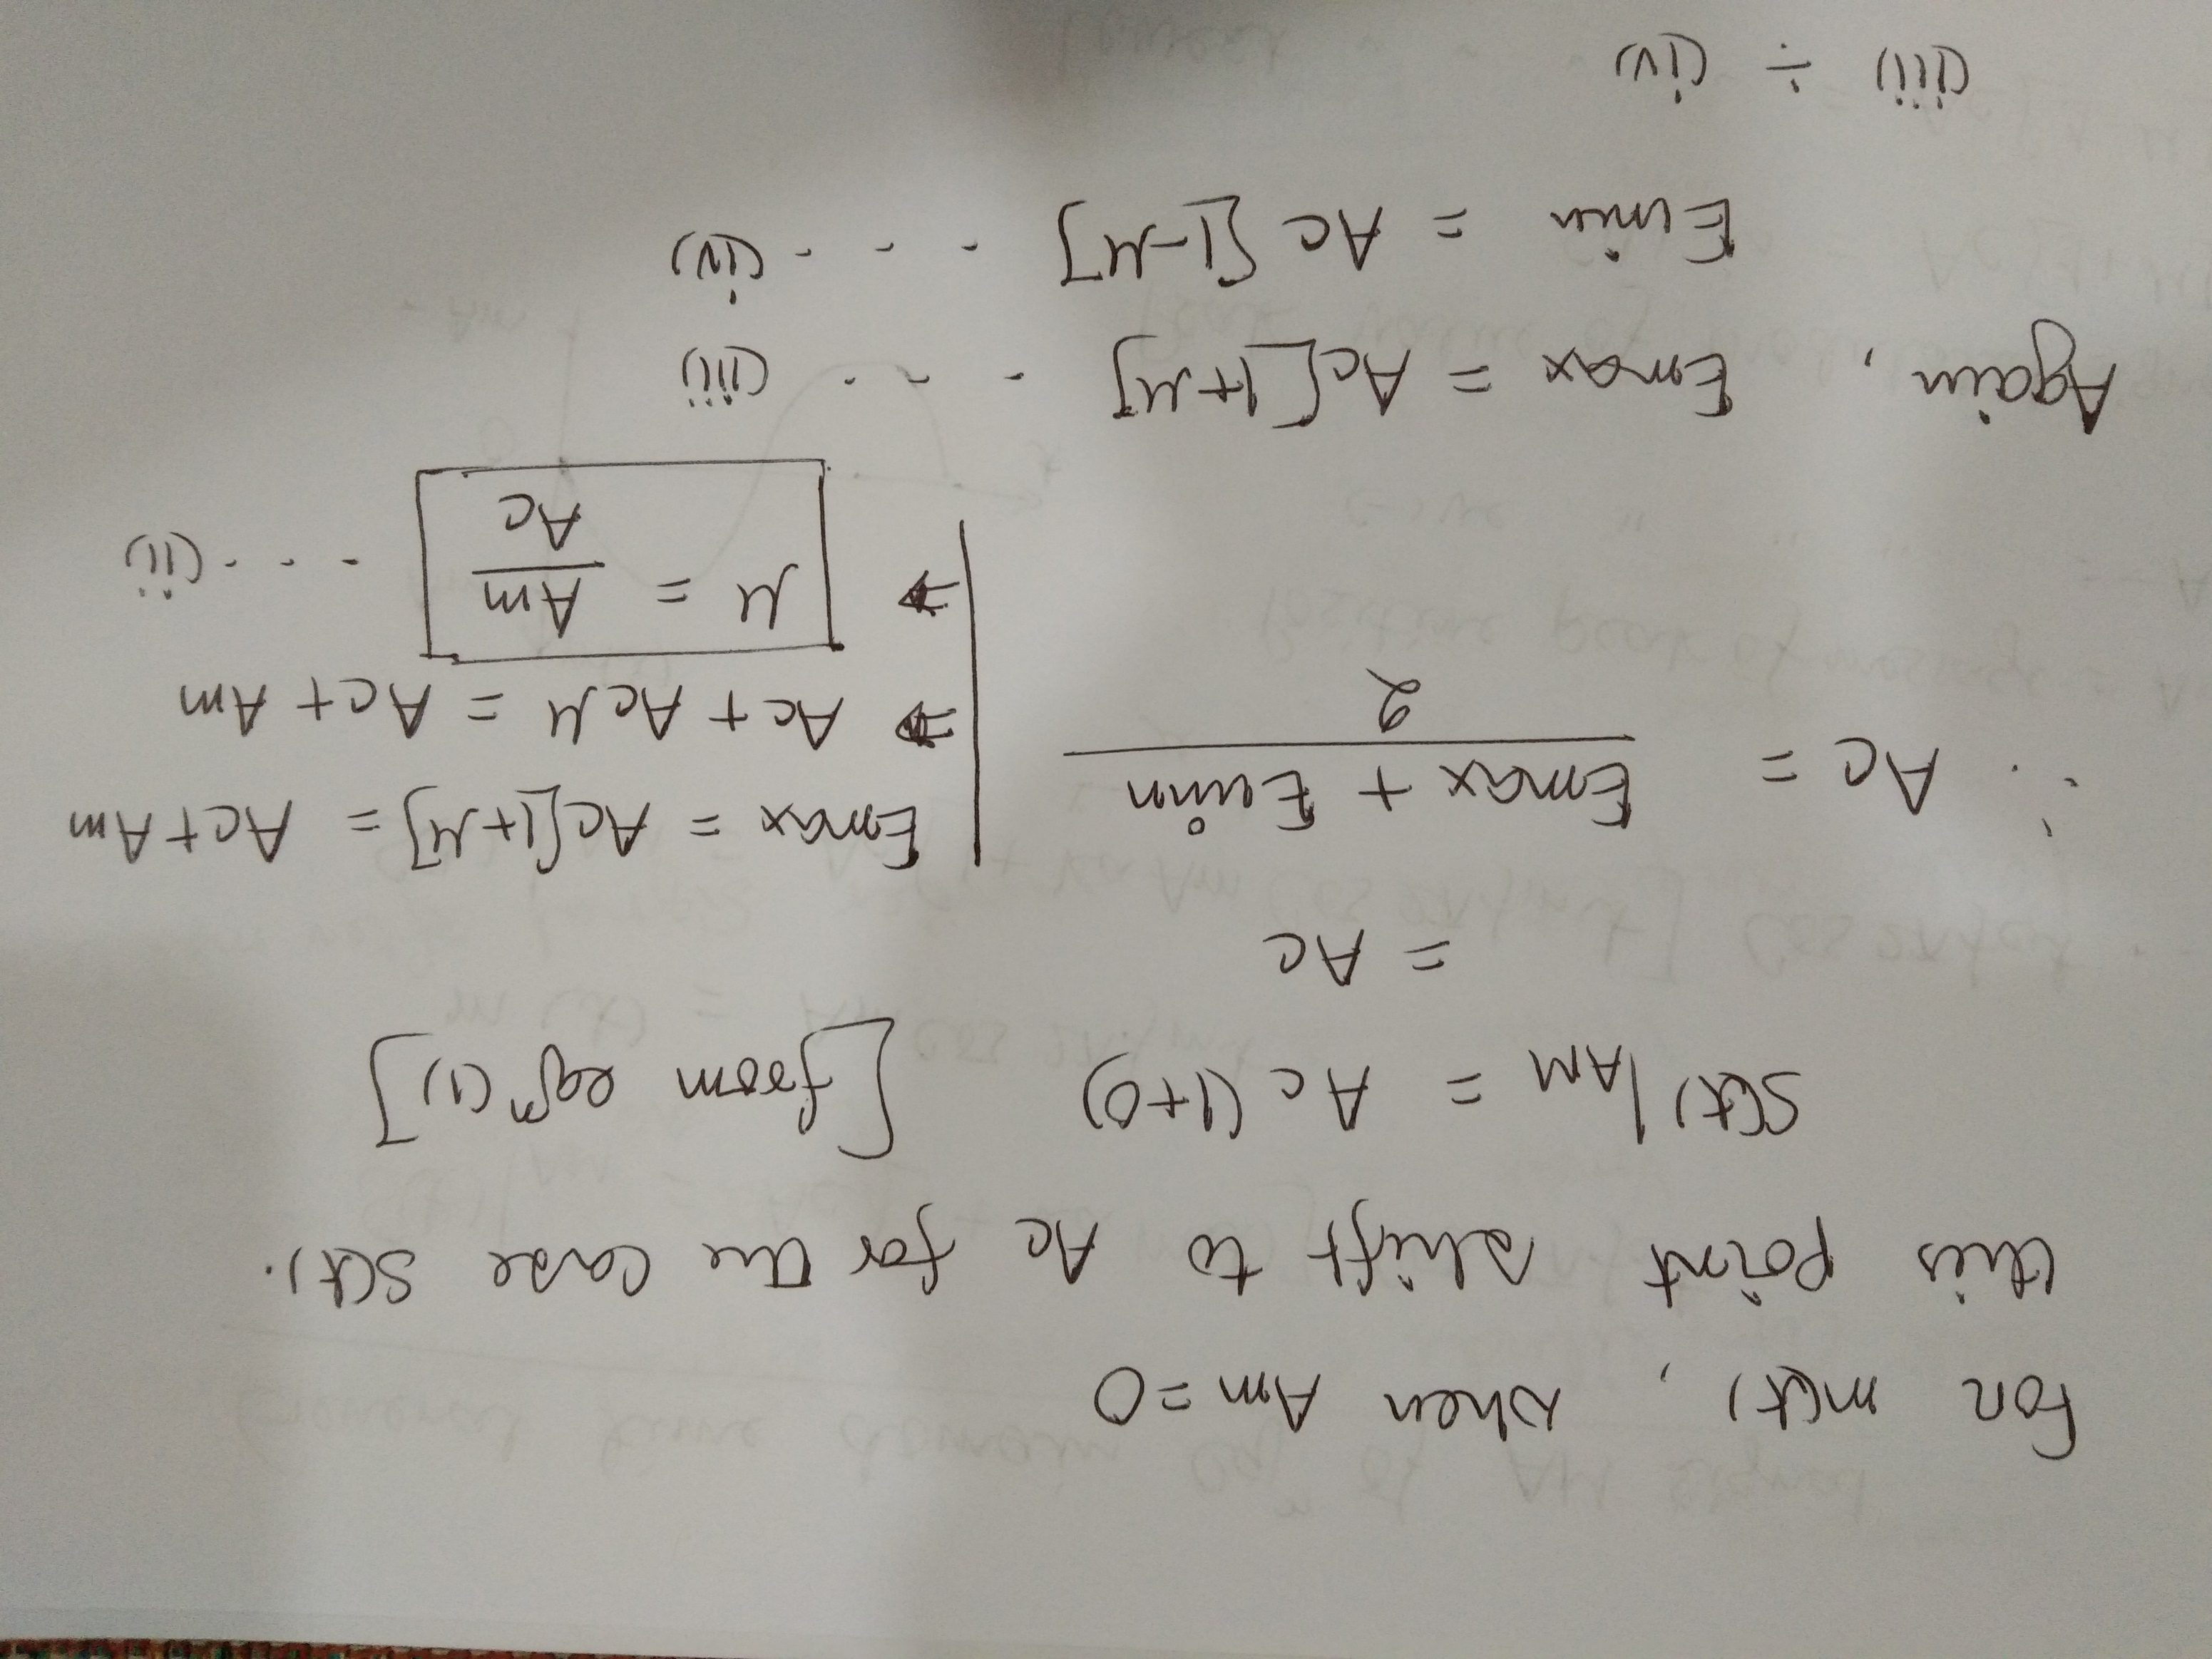 For m(t), when Am=0
this point shift to Ac for the case s(t).
s(t)|AM = Ac(1+0) [from eqn (1)]
= Ac
∴ Ac = Emax + Emin / 2
Emax = Ac[1+μ] = Ac+Am
⇒ Ac+ Acμ = Ac+ Am
⇒ μ = Am / Ac - - - (ii)
Again, Emax = Ac[1+μ] - - - (iii)
Emin = Ac[1-μ] - - - (iv)
(iii) ÷ (iv)